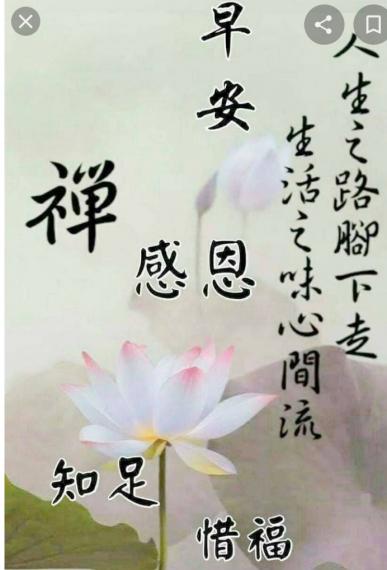 早安
人生之路腳下走
生活之味心間流
禅
感恩
知足
惜福